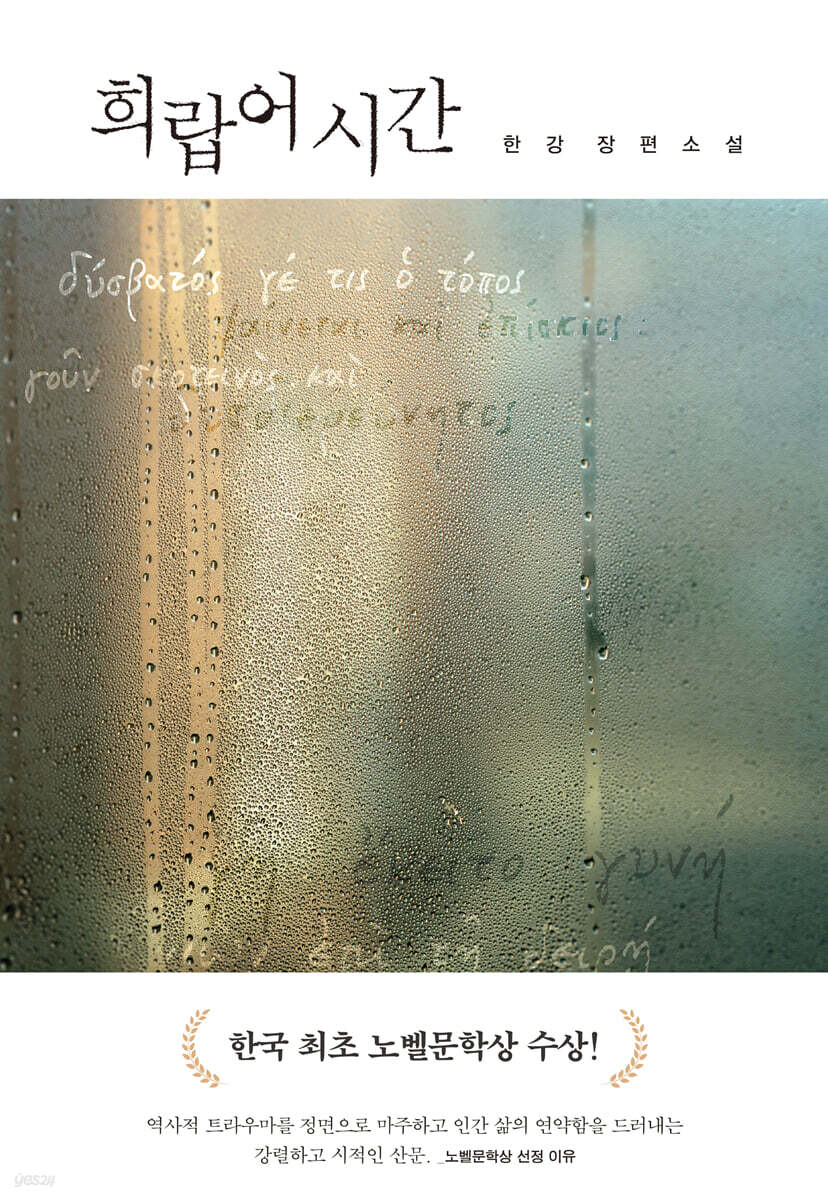 희랍어 시간
한강 장편소설
δύσβατός γέ τις ὁ τόπος
φαίνεται καὶ ἐπίσκιος·
γοῦν σκοτεινὸς καὶ
γυνή
한국 최초 노벨문학상 수상!
역사적 트라우마를 정면으로 마주하고 인간 삶의 연약함을 드러내는
강렬하고 시적인 산문. _노벨문학상 선정 이유
yes24